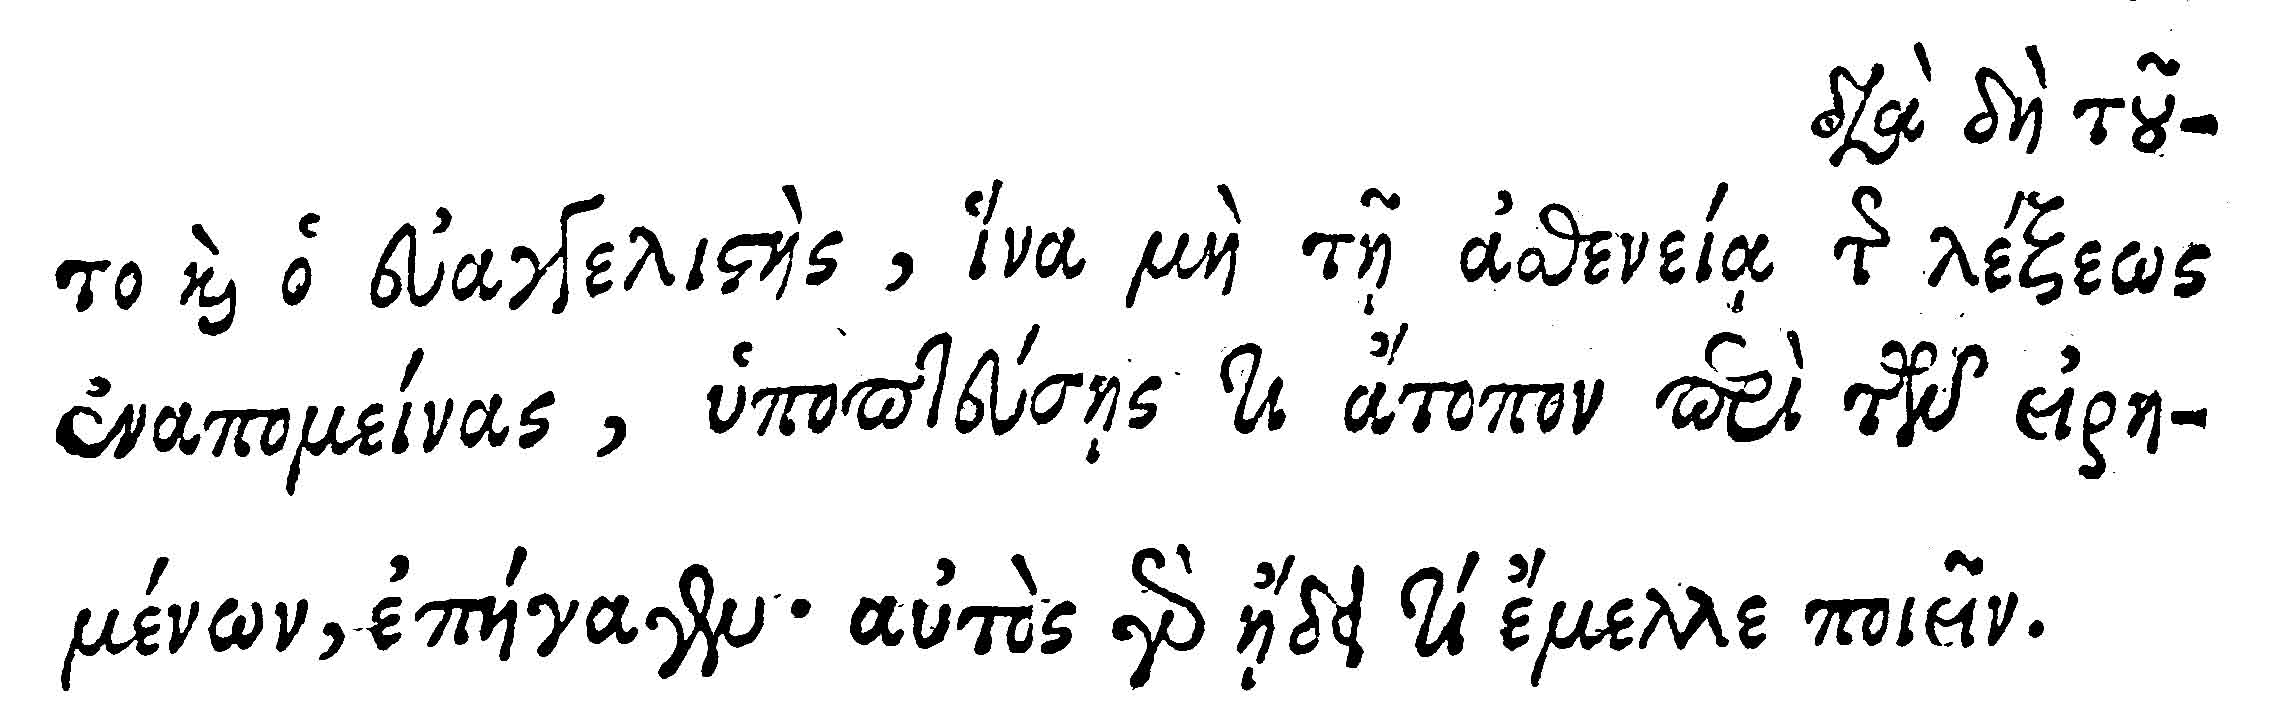 διὰ δὴ τοῦ-
το καὶ ὁ εὐαγγελιστὴς, ἵνα μὴ τῇ ἀσθενείᾳ τῆς λέξεως
ἐναπομείνας, ὑποπτεύσῃς τι ἄτοπον περὶ τῶν εἰρη-
μένων, ἐπήγαγεν· αὐτὸς γὰρ ᾔδει τί ἔμελλε ποιεῖν.